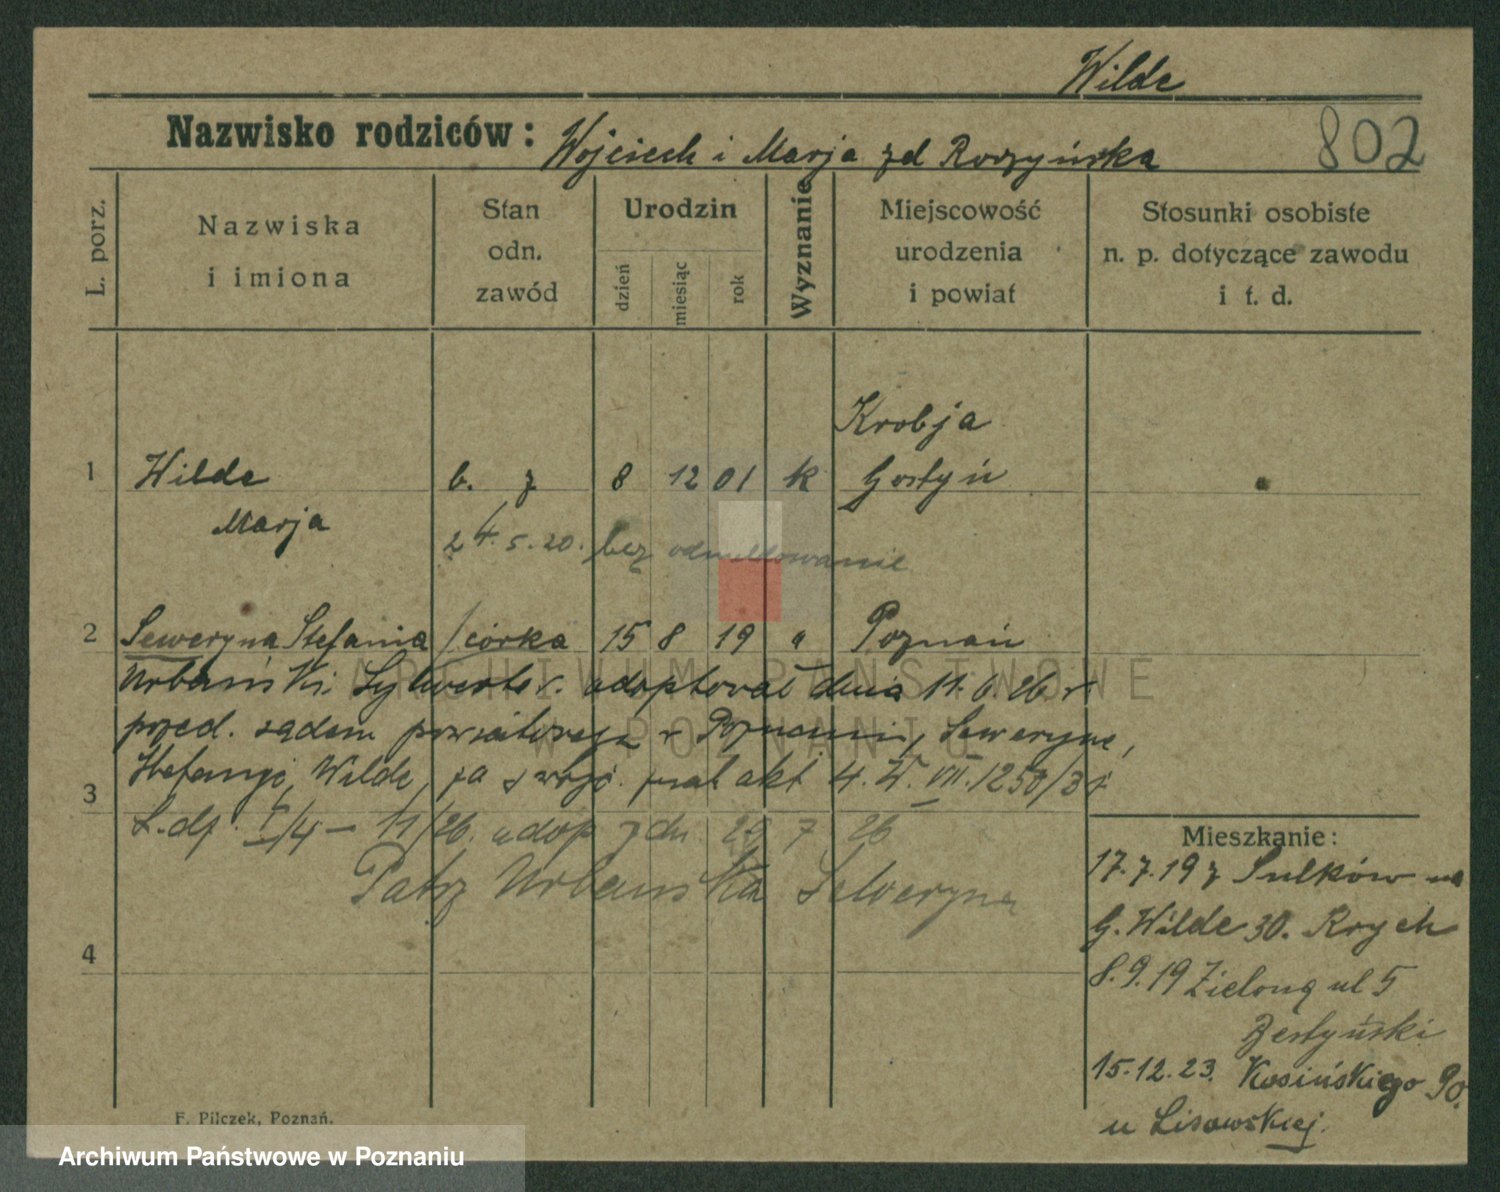 Wilde
Nazwisko rodziców: Wojciech i Marja zd Roszyńska
802
L. porz.
Nazwiska i imiona
Stan odn. zawód
Urodzin
dzień
miesiąc
rok
Wyznanie
Miejscowość urodzenia i powiat
Stosunki osobiste n. p. dotyczące zawodu i t. d.
Krobja
1 Wilde b. z 8 12 01 k Gostyń
Marja
24.5.20. bez odmeldowanie
2 Seweryna Stefania / córka 15 8 19 " Poznań
Urbański Sylwester. adoptował dnia 11.6.26 r
przed. sądem powiatowym w Poznaniu, Sewerynę,
3 Stefanję, Wilde, za swoje. akt 4. VII. 1250/31
L.dz. I/4 - 11/26. adop z dn. 7 26
Patrz Urbańska Seweryna
4
Mieszkanie:
17.7.19 z Sulków na
G. Wilde 30. Rych
8.9.19 Zielona ul 5
15.12.23. Kosińskiego
u Lisowskiej.
F. Pilczek, Poznań.
ARCHIWUM PAŃSTWOWE
W POZNANIU
Archiwum Państwowe w Poznaniu